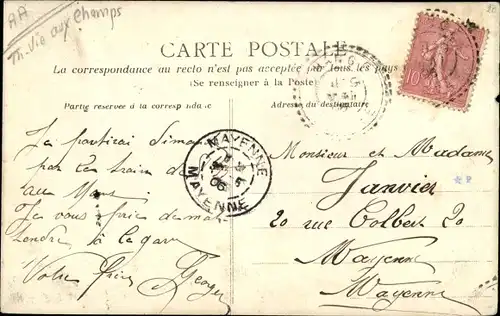 AA
Th. Vie aux Champs
CARTE POSTALE
La correspondance au recto n'est pas acceptée par tous les pays
(Se renseigner à la Poste)
Partie réservée à la correspondance
Adresse du destinataire
10
MAYENNE
MAYENNE
Je partirai diman
par le train de
au Mans
Je vous prie de m'at
tendre à la gare
Votre frère Georges
Monsieur et Madame
Janvier
20 rue Colbert 20
Mayenne
Mayenne